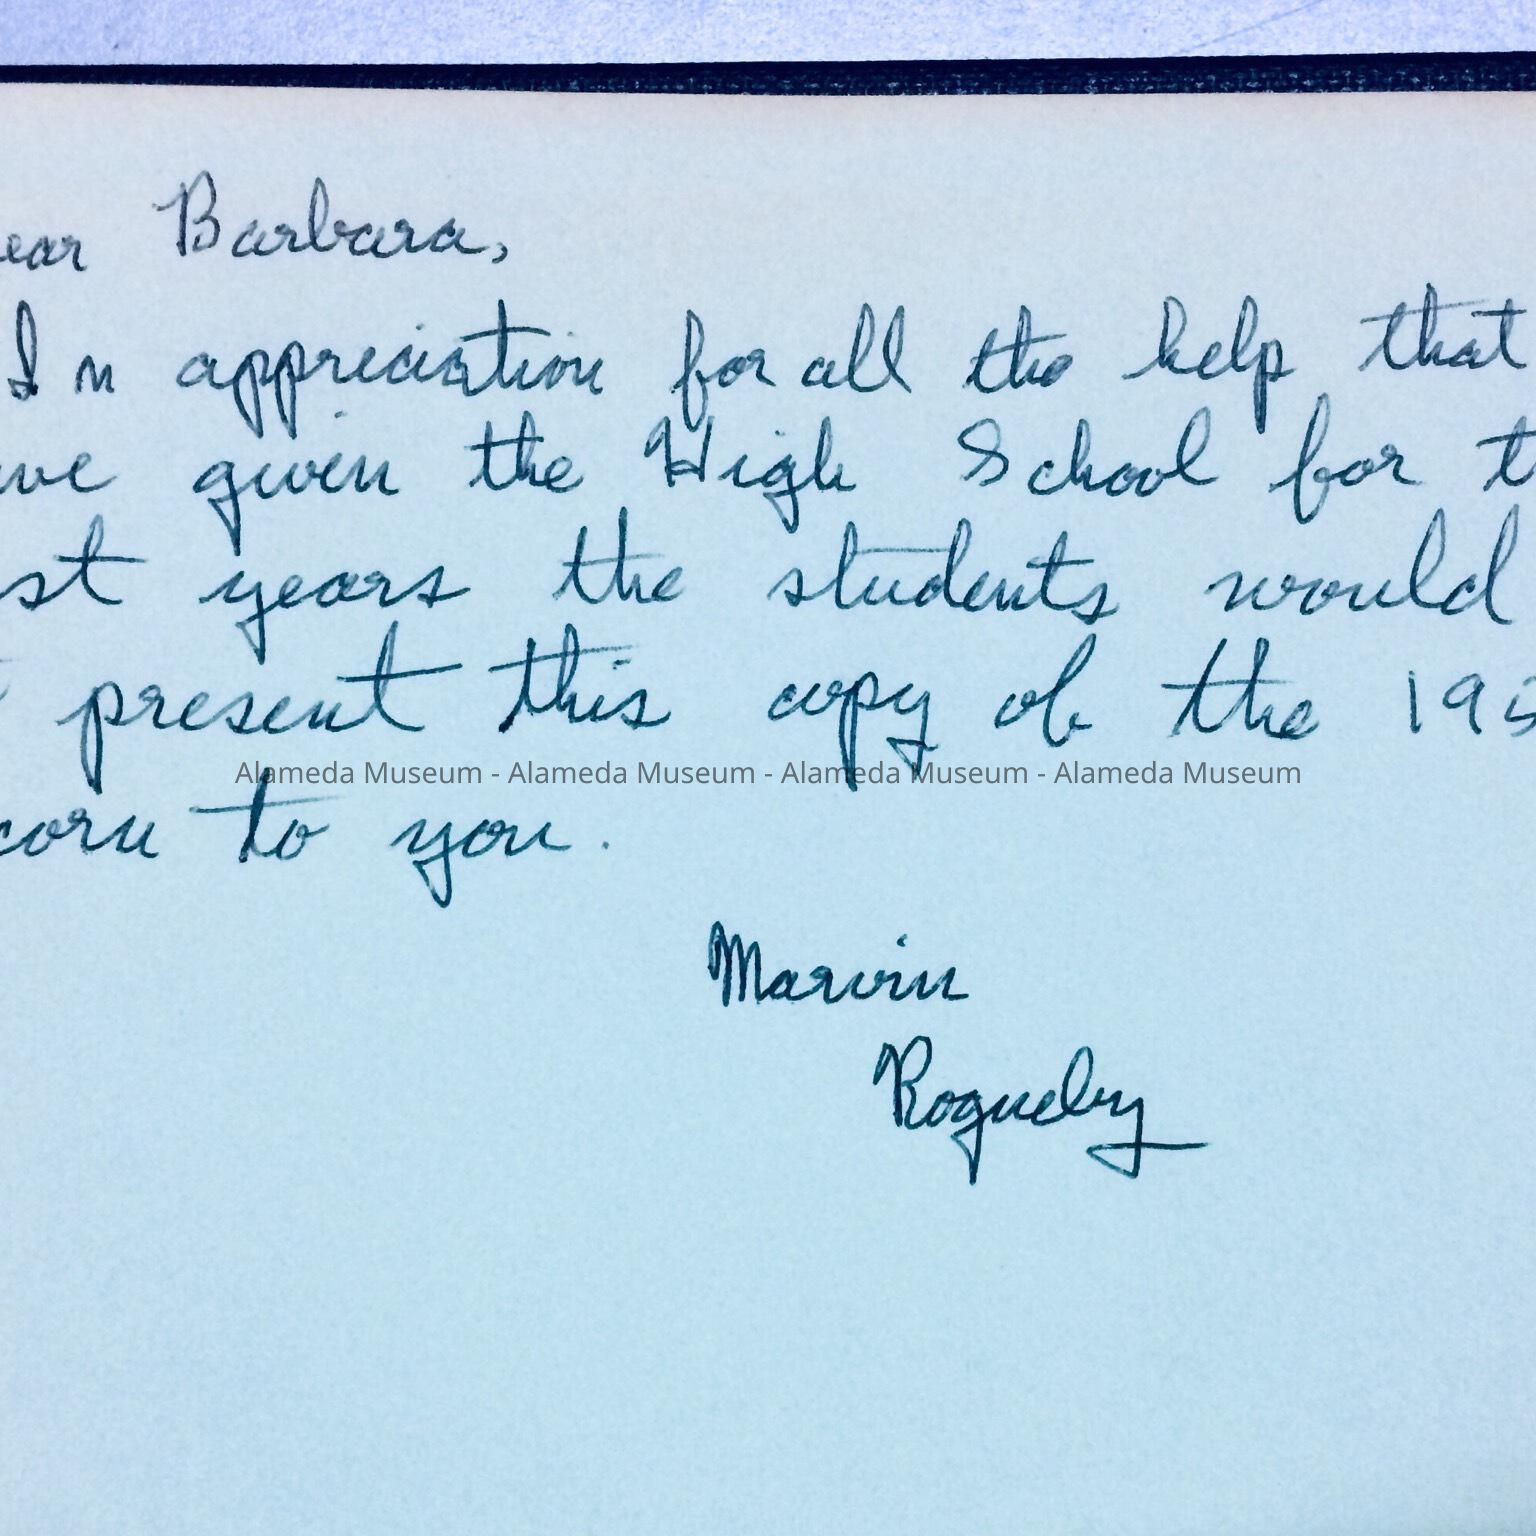 ear Barbara,
In appreciation for all the help that
ve given the High School for t
st years the students would
present this copy of the 195
corn to you.
Alameda Museum - Alameda Museum - Alameda Museum - Alameda Museum
Marvin
Rogueby